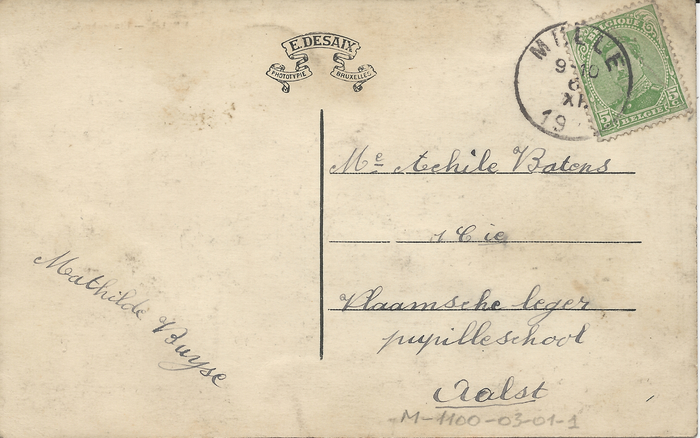 E. DESAIX
PHOTOTYPIE BRUXELLES
9-10
XI
19
BELGIQUE
5 BELGIË 5
Me Achile Batens
1 Cie
Vlaamsche leger
pupilleschool
Aalst
Mathilde Buyse
M-1100-03-01-1